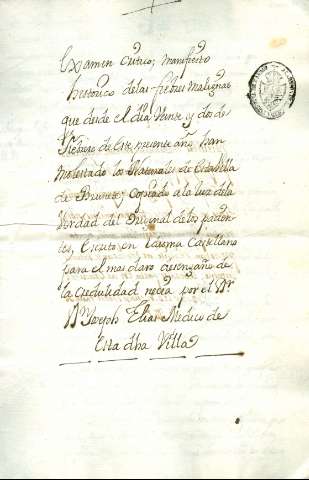 Examen Critico, manifiesto
historico de las fiebres malignas
que desde el dia Veinte y dos de
Febrero de Este presente año, han
molestado los Naturales de Esta Villa
de Brunete; Copiado a la luz de la
Verdad del Original de los
Escrito en Idioma Castellano
para el mas claro desengaño de
la Credulidad necia por el Dr
Dn Joseph Elias Medico de
Esta dha Villa